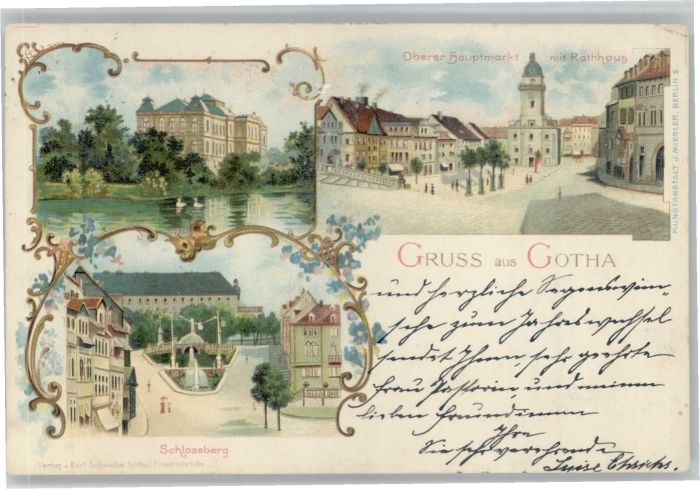 Oberer Hauptmarkt mit Rathhaus
KUNSTANSTALT J. MIESLER, BERLIN S.
GRUSS aus GOTHA
und herzliche Segenswün-
sche zum Jahreswechsel
sendet Ihnen, sehr geehrte
Frau Pastorin, und meinen
lieben Freundinnen
Ihre
Sie sehr verehrende
Luise Ehrichs.
Schlossberg
Verlag v. Karl Schwalbe Gotha-Friedrichroda